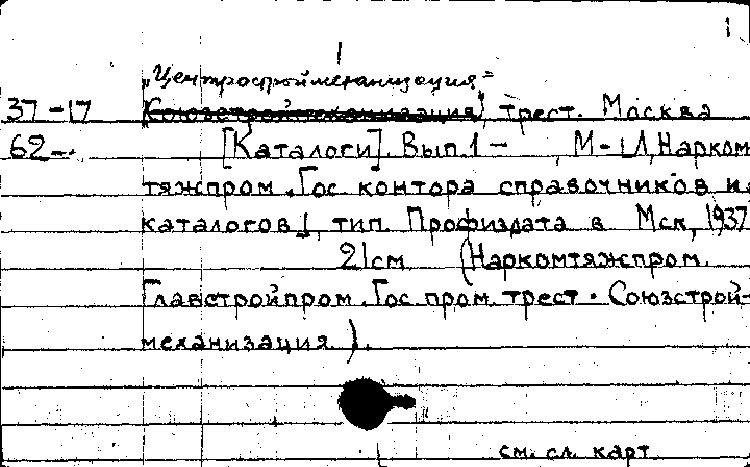 1
1
„Центростроймеханизация"
37-17 Союзстроймеханизация, трест. Москва
62-. [Каталоги]. Вып. 1 - М.-Л, Нарком
тяжпром. Гос контора справочников и
каталогов, тип. Профиздата в Мск, 1937
21 см (Наркомтяжпром.
Главстройпром. Гос. пром. трест. Союзстрой-
механизация).
см. сл. карт